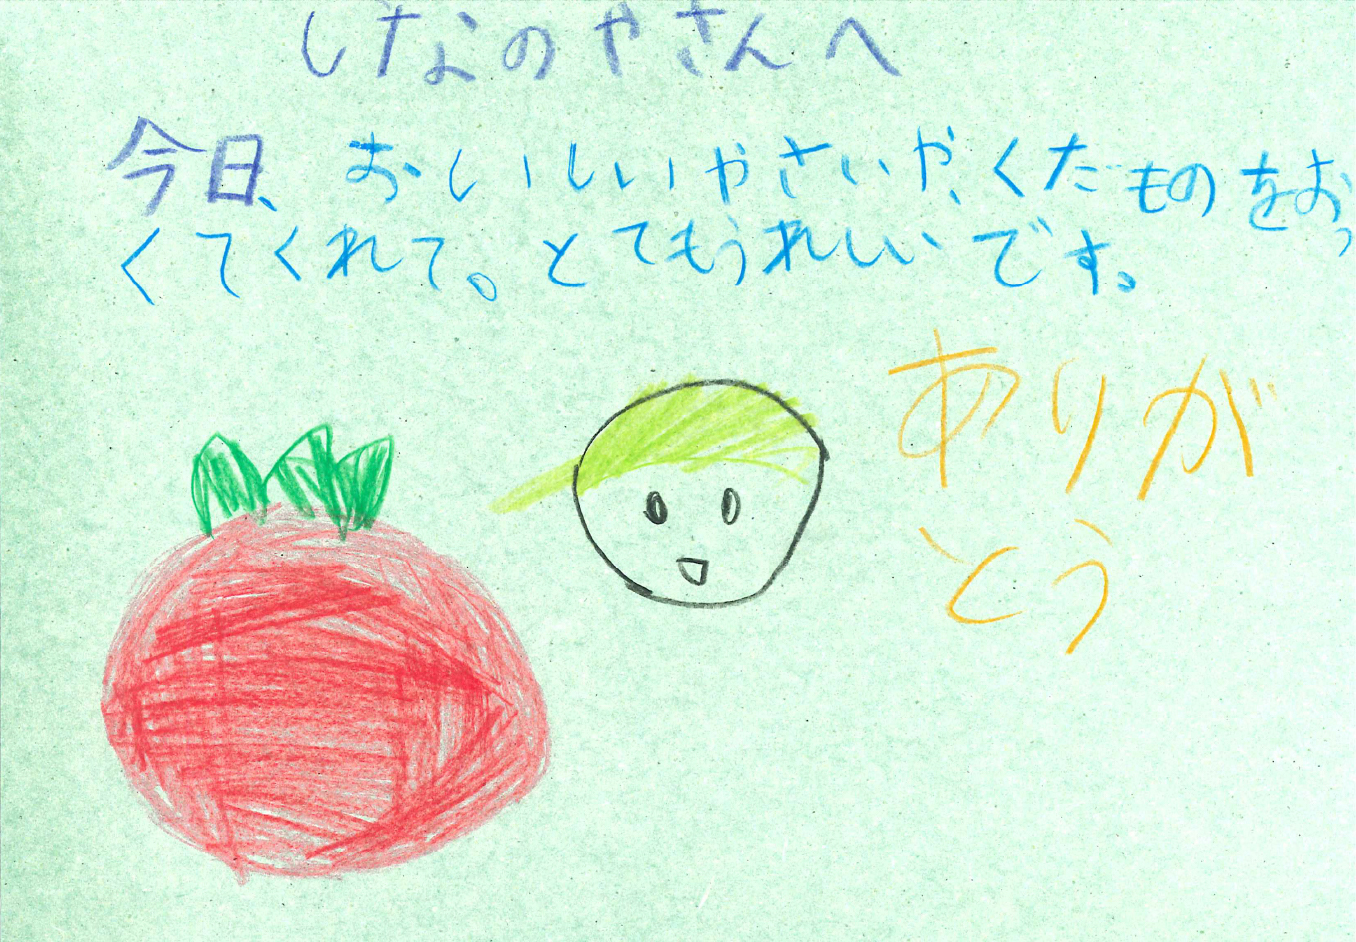 しなのやさんへ
今日、おいしいやさいや、くだものをおっ
くてくれて。とてもうれしいです。
ありが
とう